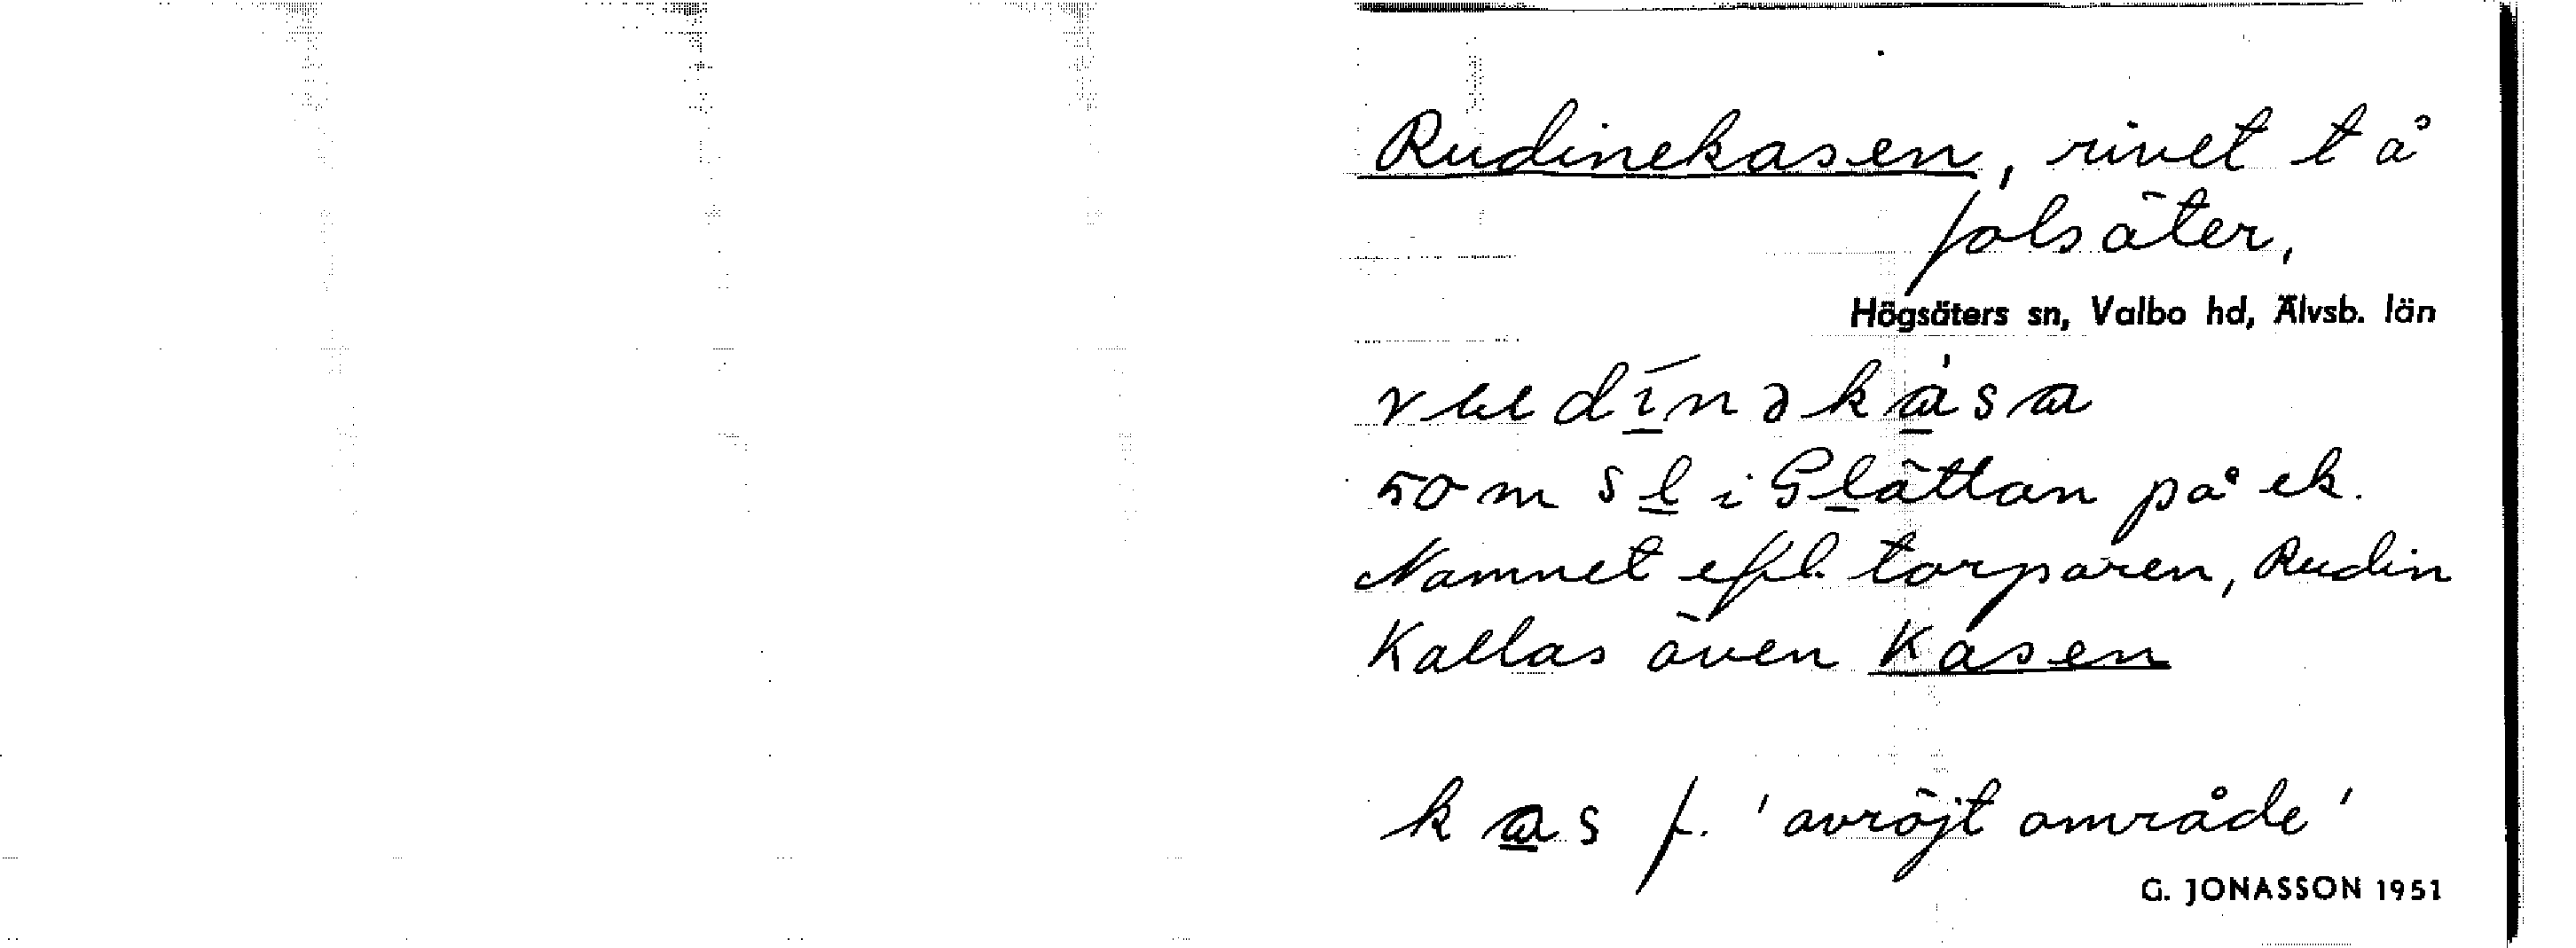 Rudinekasen, rivet tå
Jolsäter,
Högsäters sn, Valbo hd, Älvsb. län
50 m S l i Slättan på ek.
Namnet eft. torparen, Rudin
Kallas även Kasen
kas f. 'avröjt område'
G. JONASSON 1951